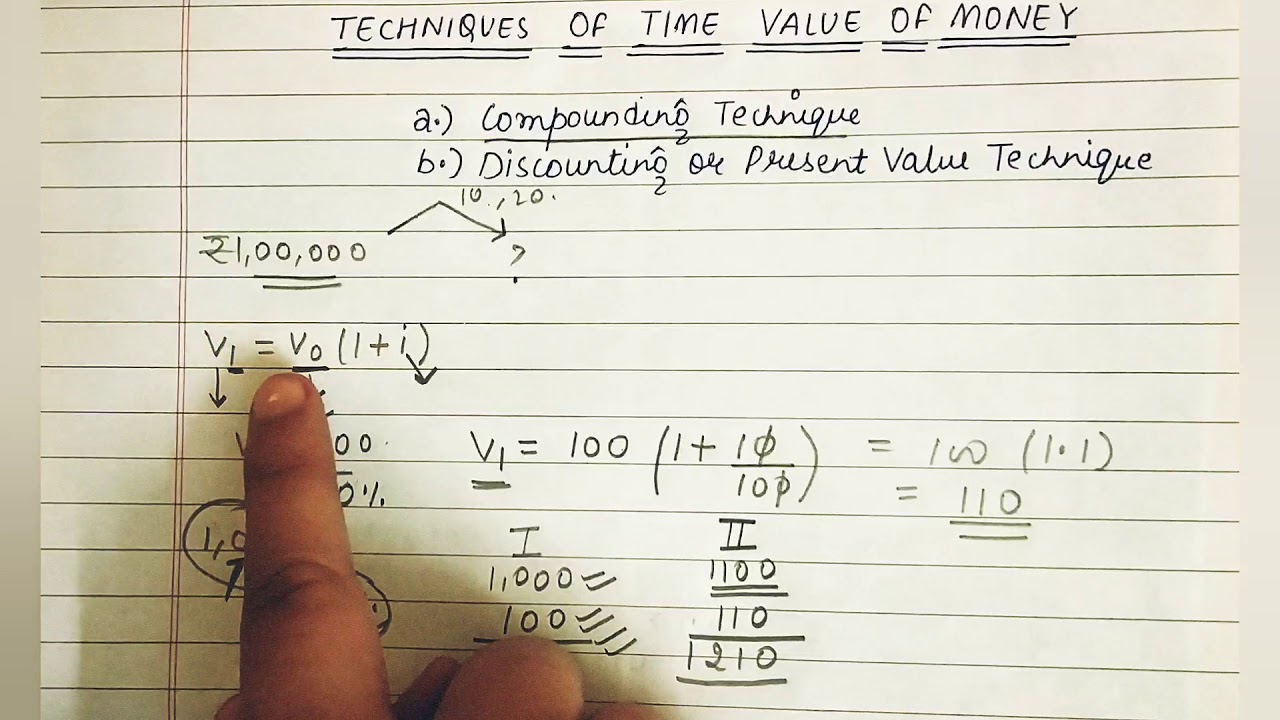 TECHNIQUES OF TIME VALUE OF MONEY
a.) Compounding Technique
b.) Discounting or Present Value Technique
10, 20.
₹1,00,000 ?
V1 = V0 (1 + i)
00
0%
V1 = 100 (1 + 10/100) = 100 (1.1)
= 110
I II
1,000 1100
100 110
1210